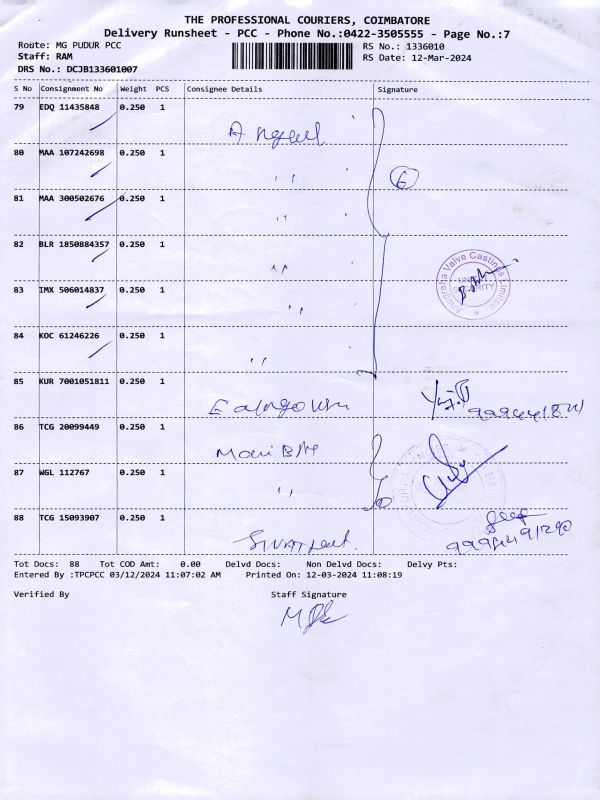 THE PROFESSIONAL COURIERS, COIMBATORE
Delivery Runsheet - PCC - Phone No.:0422-3505555 - Page No.:7
Route: MG PUDUR PCC
RS No.: 1336010
Staff: RAM
RS Date: 12-Mar-2024
DRS No.: DCJB133601007
S No Consignment No Weight PCS Consignee Details Signature
79 EDQ 11435848 0.250 1
80 MAA 107242698 0.250 1
6
81 MAA 300502676 0.250 1
82 BLR 1850884357 0.250 1
Anugraha Valve Castings Limited
83 IMX 506014837 0.250 1
84 KOC 61246226 0.250 1
85 KUR 7001051811 0.250 1
86 TCG 20099449 0.250 1
87 WGL 112767 0.250 1
88 TCG 15093907 0.250 1
Tot Docs: 88 Tot COD Amt: 0.00 Delvd Docs: Non Delvd Docs: Delvy Pts:
Entered By :TPCPCC 03/12/2024 11:07:02 AM Printed On: 12-03-2024 11:08:19
Verified By Staff Signature